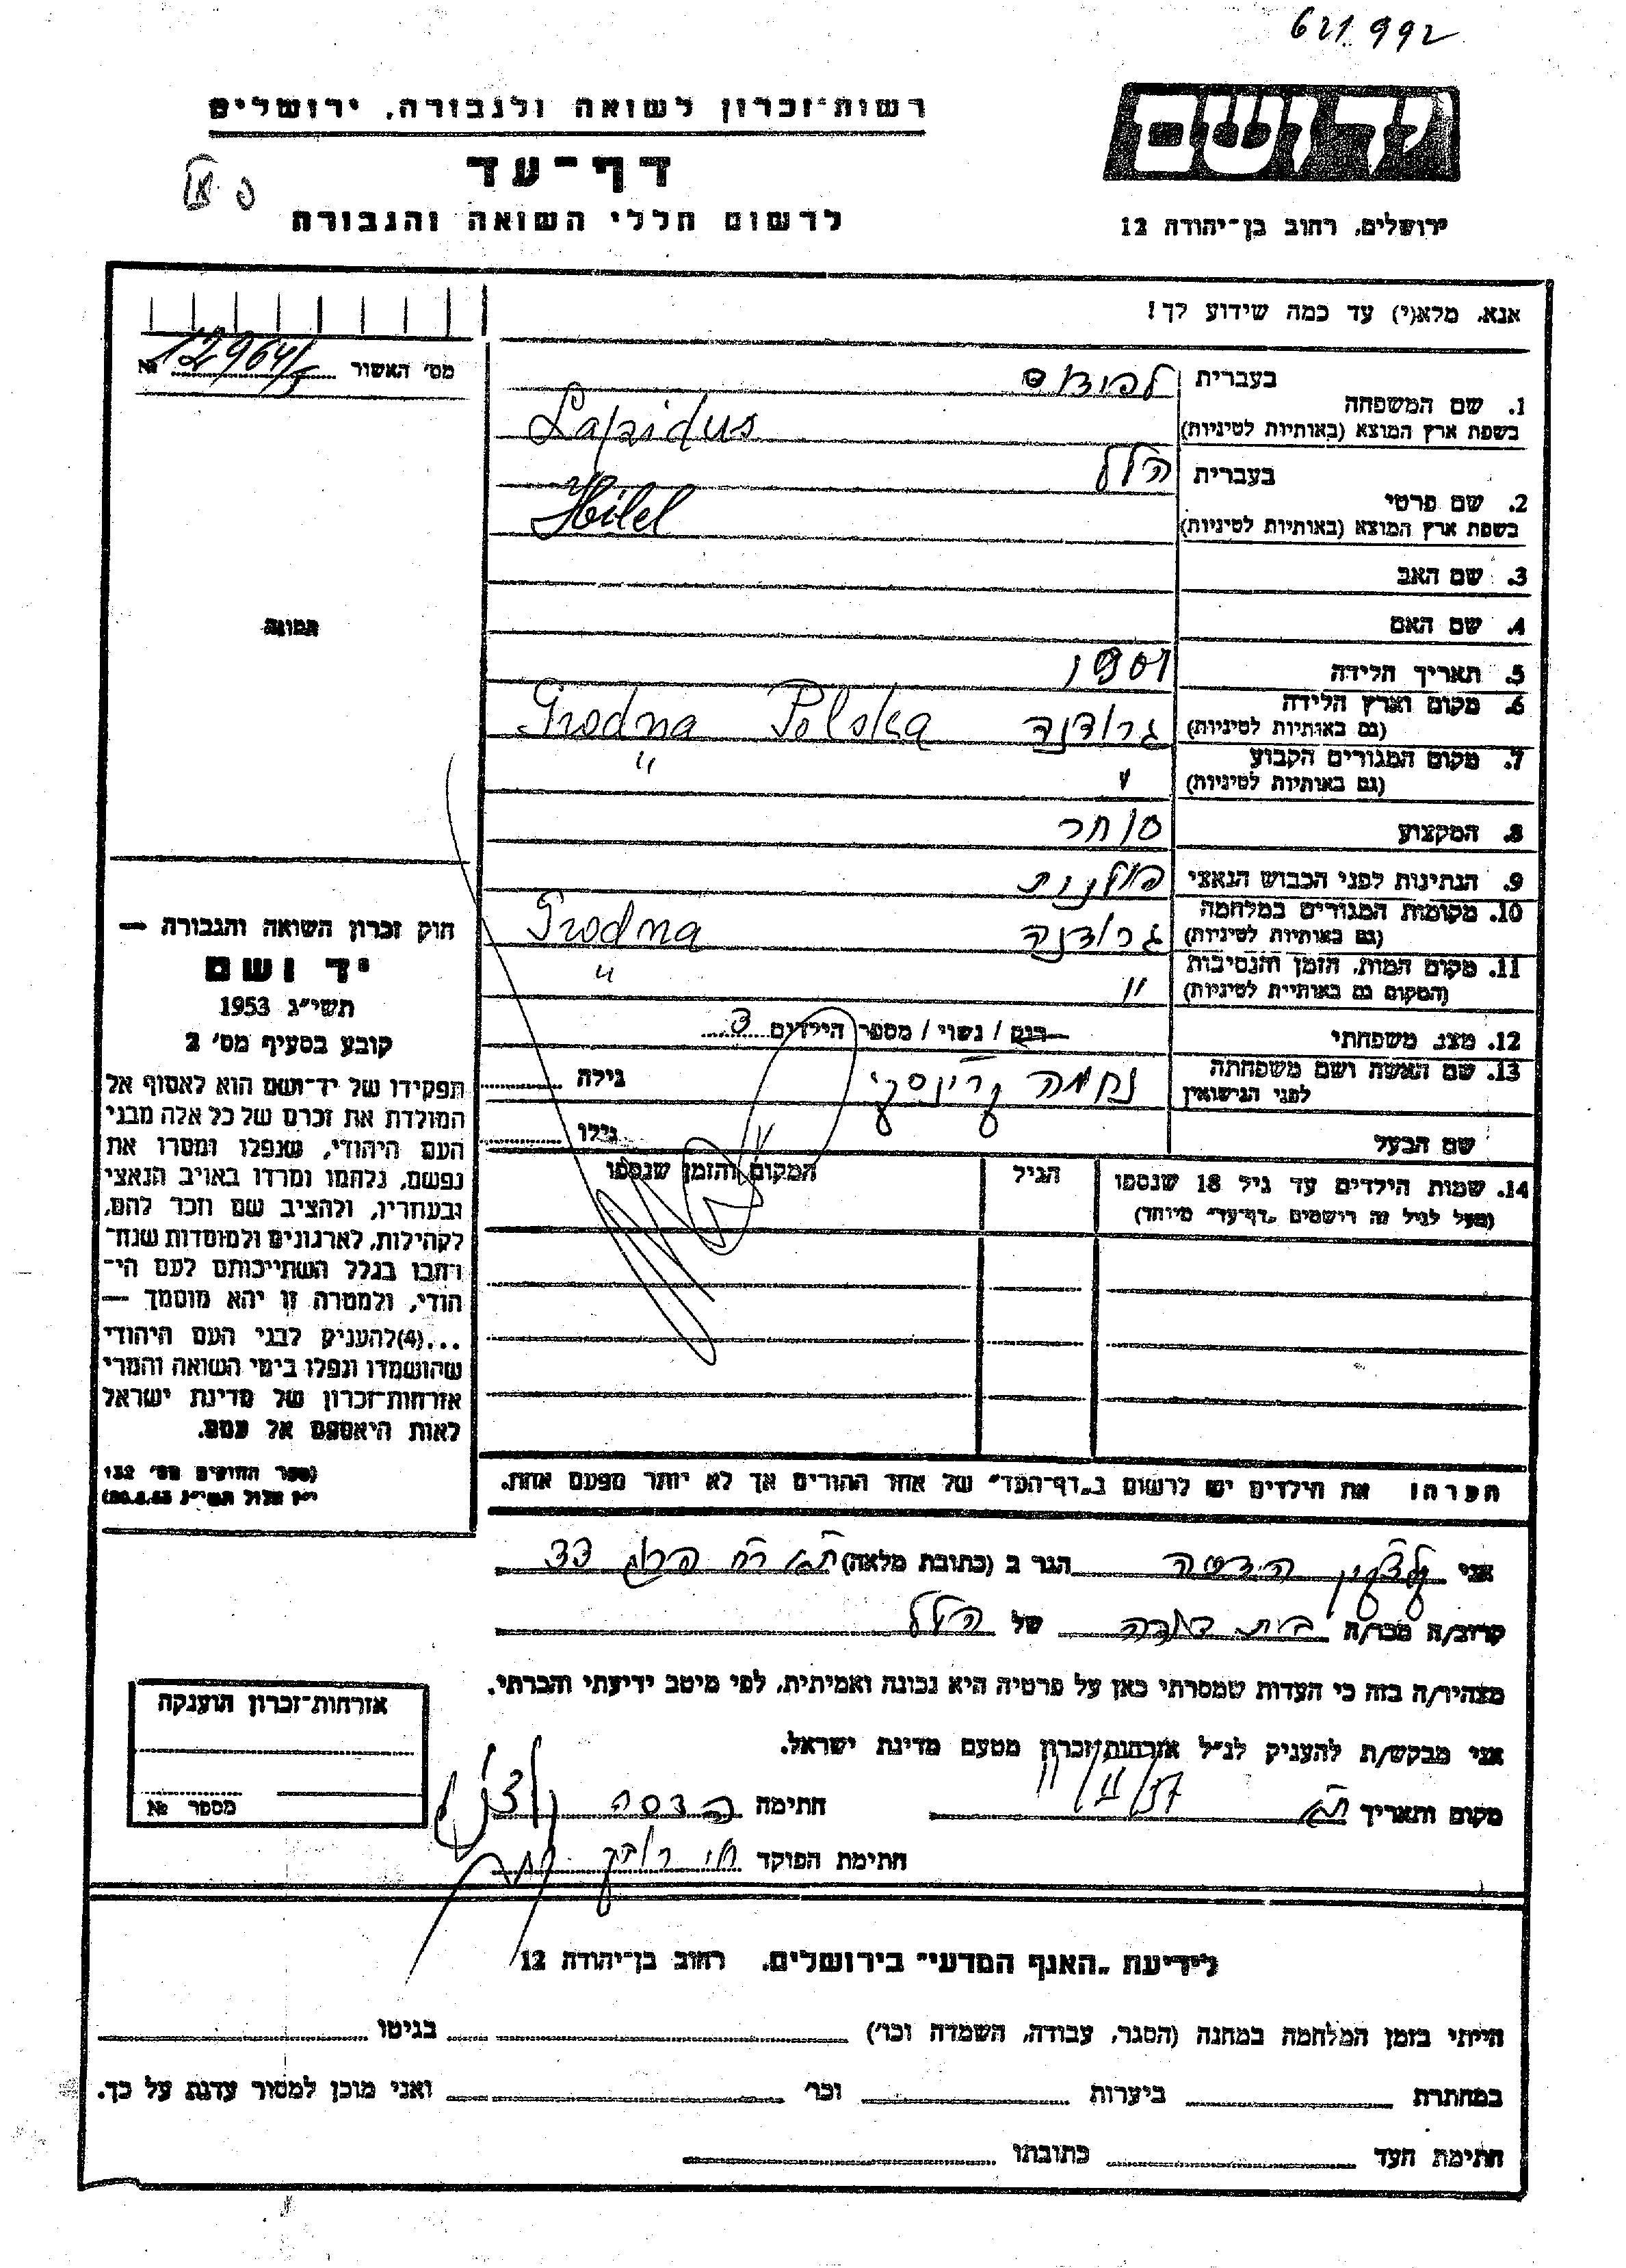 621992
יד ושם
ירושלים, רחוב בן־יהודה 12
רשות־זכרון לשואה ולגבורה, ירושלים
דף־עד
לרשום חללי השואה והגבורה
אנא, מלא(י) עד כמה שידוע לך!
מס' האשור № 12964/5
תמונה
1. שם המשפחה
בעברית לפידוס
בשפת ארץ המוצא (באותיות לטיניות) Lapidus
2. שם פרטי
בעברית הלל
בשפת ארץ המוצא (באותיות לטיניות) Hilel
3. שם האב
4. שם האם
5. תאריך הלידה
6. מקום וארץ הלידה
(גם באותיות לטיניות) גרודנה Grodna Polska
7. מקום המגורים הקבוע
(גם באותיות לטיניות) " "
8. המקצוע סוחר
9. הנתינות לפני הכבוש הנאצי פולנית
10. מקומות המגורים במלחמה
(גם באותיות לטיניות) גרודנה Grodna
11. מקום המות, הזמן והנסיבות
(המקום גם באותיות לטיניות) " "
12. מצב משפחתי רוק / נשוי / מספר הילדים 3
13. שם האשה ושם משפחתה
לפני הנישואין נחמה קרינסקי גילה
שם הבעל גילו
14. שמות הילדים עד גיל 18 שנספו הגיל המקום והזמן שנספו
(מעל לגיל זה רישמים "דף־עד" מיוחד)
הערה: את הילדים יש לרשום ב"דף־העד" של אחד ההורים אך לא יותר מפעם אחת.
חוק זכרון השואה והגבורה —
יד ושם
תשי"ג 1953
קובע בסעיף מס' 2
תפקידו של יד־ושם הוא לאסוף אל
המולדת את זכרם של כל אלה מבני
העם היהודי, שנפלו ומסרו את
נפשם, נלחמו ומרדו באויב הנאצי
ובעוזריו, ולהציב שם וזכר להם,
לקהילות, לארגונים ולמוסדות שנח־
רבו בגלל השתייכותם לעם הי־
הודי, ולמטרה זו יהא מוסמך —
...(4) להעניק לבני העם היהודי
שהושמדו ונפלו בימי השואה והמרי
אזרחות־זכרון של מדינת ישראל
לאות היאספם אל עמם.
(ספר החוקים מס' 132
אני הגר ב (כתובת מלאה) 33
קרוב/ה מכר/ה של הלל
מצהיר/ה בזה כי העדות שמסרתי כאן על פרטיה היא נכונה ואמיתית, לפי מיטב ידיעתי והכרתי.
אני מבקש/ת להעניק לנ"ל אזרחות־זכרון מטעם מדינת ישראל.
מקום ותאריך חתימה הדסה
חתימת הפוקד
אזרחות־זכרון הוענקה
מספר №
לידיעת "האגף המדעי" בירושלים, רחוב בן־יהודה 12
הייתי בזמן המלחמה במחנה (הסגר, עבודה, השמדה וכו') בגיטו
במחתרת ביערות וכו' ואני מוכן למסור עדות על כך.
חתימת העד כתובתו